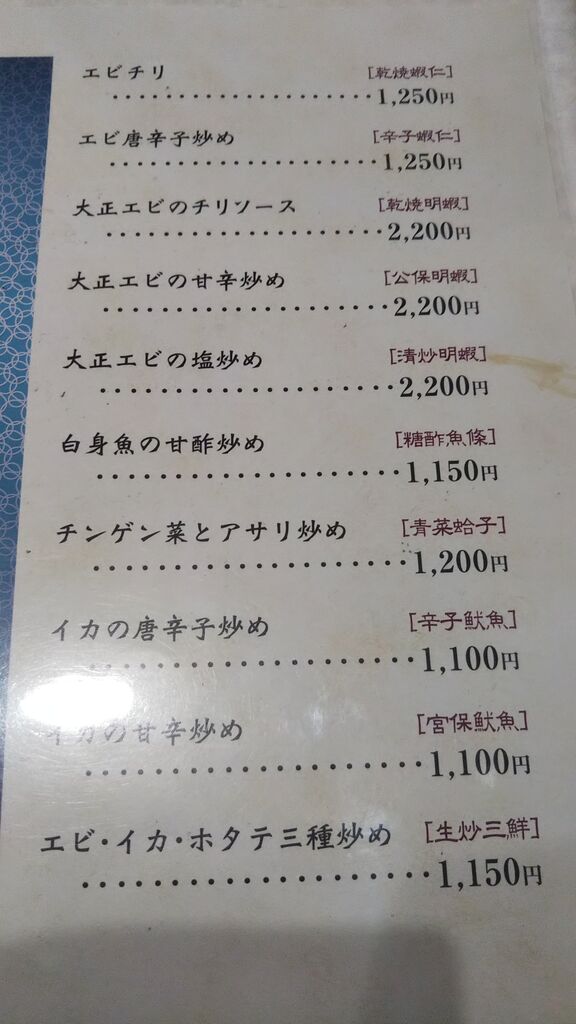 エビチリ [乾焼蝦仁]
····················1,250円
エビ唐辛子炒め [辛子蝦仁]
····················1,250円
大正エビのチリソース [乾焼明蝦]
····················2,200円
大正エビの甘辛炒め [公保明蝦]
····················2,200円
大正エビの塩炒め [清炒明蝦]
····················2,200円
白身魚の甘酢炒め [糖酢魚條]
····················1,150円
チンゲン菜とアサリ炒め [青菜蛤子]
····················1,200円
イカの唐辛子炒め [辛子魷魚]
····················1,100円
イカの甘辛炒め [宮保魷魚]
····················1,100円
エビ・イカ・ホタテ三種炒め [生炒三鮮]
····················1,150円